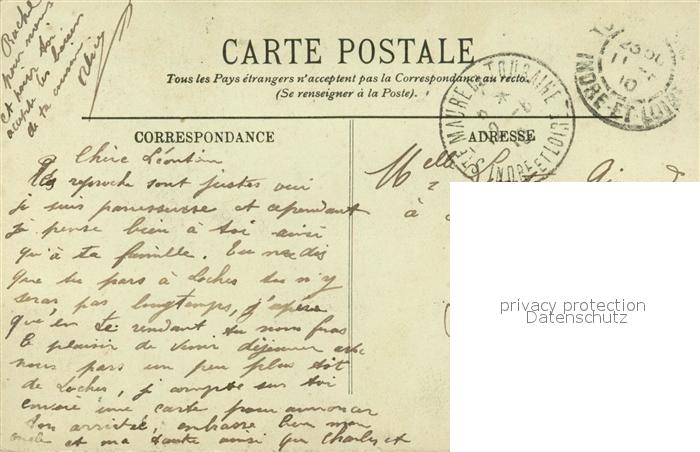 CARTE POSTALE
Tous les Pays étrangers n'acceptent pas la Correspondance au recto.
(Se renseigner à la Poste).
CORRESPONDANCE
ADRESSE
STE MAURE DE TOURAINE
INDRE ET LOIRE
INDRE ET LOIRE
Chère Léontine
reproche sont justes oui
je suis paresseuse et cependant
je pense bien à toi ainsi
qu'à ta famille. Tu me dis
que tu pars à Loches tu n'y
seras pas longtemps, j'espère
qu'en te rendant tu nous feras
le plaisir de venir déjeuner avec
nous pars un peu plus tôt
de Loches, je compte sur toi
envoie une carte pour annoncer
ton arrivée, embrasse bien mon
oncle et ma tante ainsi que Charles et
Rachel
pour nous
et pour toi
les baisers
de ta cousine
Melle
à
privacy protection
Datenschutz